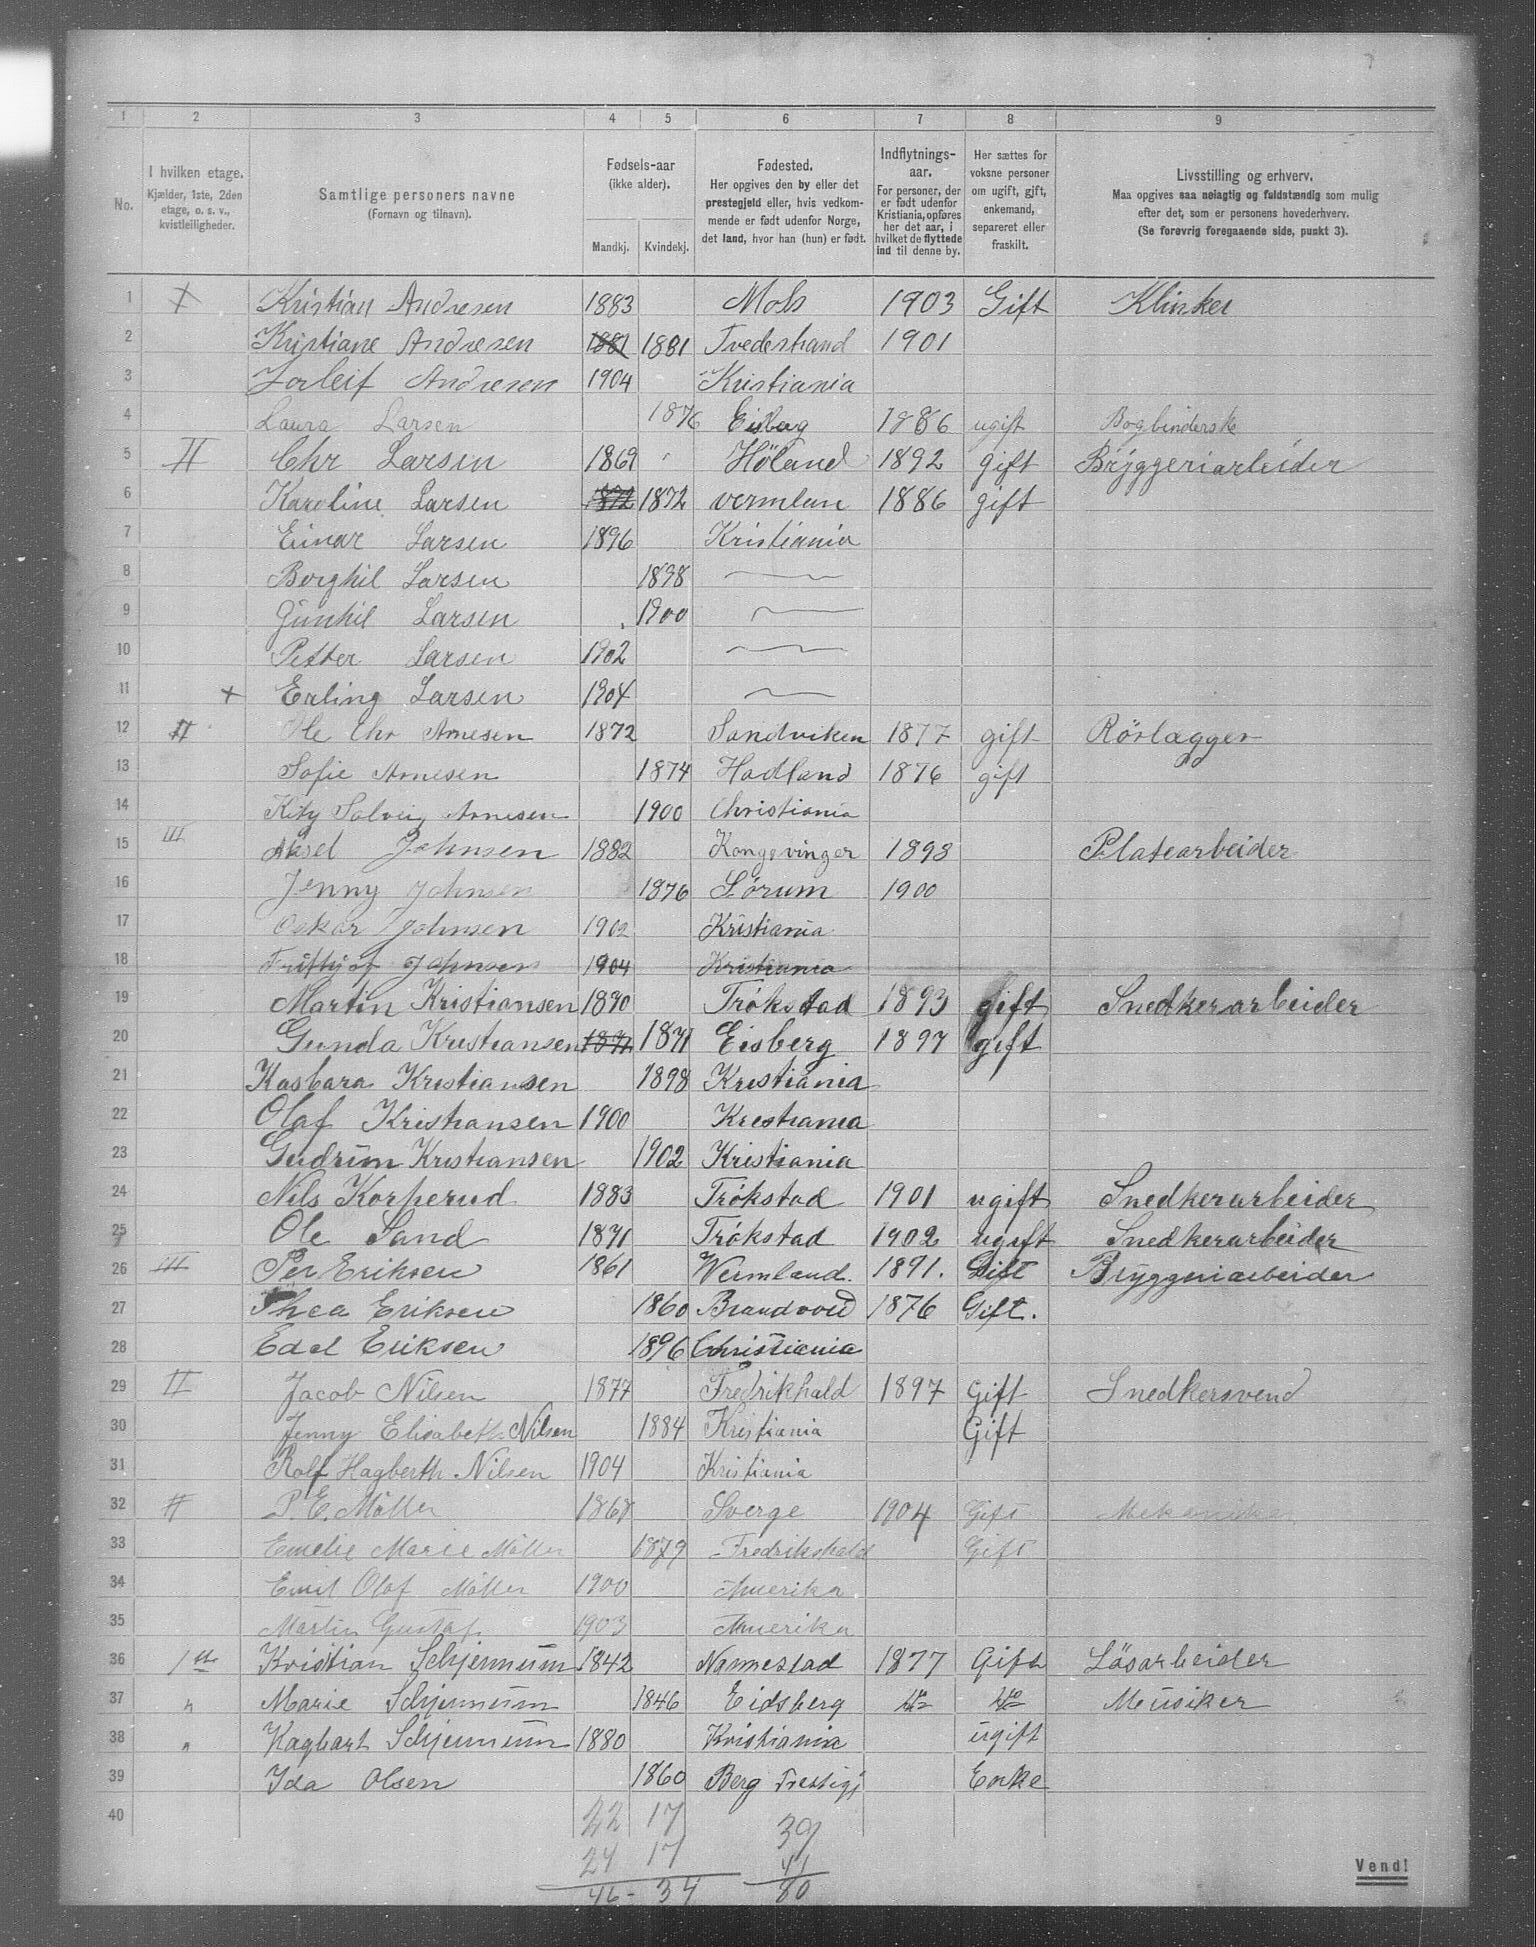 1 2 3 4 5 6 7 8 9
No.
I hvilken etage.
Kjælder, 1ste, 2den
etage, o. s. v.,
kvistleiligheder.
Samtlige personers navne
(Fornavn og tilnavn).
Fødsels-aar
(ikke alder).
Mandkj. Kvindekj.
Fødested.
Her opgives den by eller det
prestegjeld eller, hvis vedkom-
mende er født udenfor Norge,
det land, hvor han (hun) er født.
Indflytnings-
aar.
For personer, der
er født udenfor
Kristiania, opføres
her det aar, i
hvilket de flyttede
ind til denne by.
Her sættes for
voksne personer
om ugift, gift,
enkemand,
separeret eller
fraskilt.
Livsstilling og erhverv.
Maa opgives saa nøiagtig og fuldstændig som mulig
efter det, som er personens hovederhverv.
(Se forøvrig foregaaende side, punkt 3).
1 Kristian Andresen 1883 Mols 1903 Gift Klinker
2 Kristiane Andresen 1881 1881 Tvedestrand 1901
3 Torleif Andresen 1904 Kristiania
4 Laura Larsen 1876 Eisberg 1886 ugift Bogbinderske
5 II Chr Larsen 1869 Höland 1892 gift Bryggeriarbeider
6 Karoline Larsen 1872 1872 vermlan 1886 gift
7 Einar Larsen 1896 Kristiania
8 Borghil Larsen 1898 —
9 Gunhil Larsen 1900 —
10 Petter Larsen 1902 —
11 + Erling Larsen 1904 —
12 II Ole Chr Arnesen 1872 Sandviken 1877 gift Rörlægger
13 Sofie Arnesen 1874 Hadland 1876 gift
14 Kity Solveig Arnesen 1900 Christiania
15 III Aksel Johnsen 1882 Kongsvinger 1898 Platearbeider
16 Jenny Johnsen 1876 Sørum 1900
17 Oskar Johnsen 1902 Kristiania
18 Frithjof Johnsen 1904 Kristiania
19 Martin Kristiansen 1870 Trøkstad 1893 gift Snedkerarbeider
20 Gunda Kristiansen 1871 1871 Eisberg 1897 gift
21 Kasbara Kristiansen 1898 Kristiania
22 Olaf Kristiansen 1900 Kristiania
23 Gudrun Kristiansen 1902 Kristiania
24 Nils Korperud 1883 Trøkstad 1901 ugift Snedkerarbeider
25 Ole Sand 1871 Trøkstad 1902 ugift Snedkerarbeider
26 III Per Eriksen 1861 Wermland. 1891. Gift Bryggeriarbeider
27 Thea Eriksen 1860 Brandvold 1876 Gift.
28 Edel Eriksen 1896 Christiania
29 II Jacob Nilsen 1877 Fredrikhald 1897 Gift Snedkersvend
30 Jenny Elisabeth Nilsen 1884 Kristiania Gift
31 Rolf Hagberth Nilsen 1904 Kristiania
32 II P. E. Möller 1868 Sverge 1904 Gift Mekaniker
33 Emelie Marie Möller 1879 Fredrikshald Gift
34 Emil Olaf Möller 1900 Amerika
35 Martin Gustaf 1903 Amerika
36 1ste Kristian Schjennum 1842 Nannestad 1877 Gift Lösarbeider
37 " Marie Schjennum 1846 Eidsberg do do Musiker
38 " Hagbart Schjennum 1880 Kristiania ugift
39 Ida Olsen 1860 Berg Enke
40 22 17 39
24 17 41
46 - 34 80
Vend!